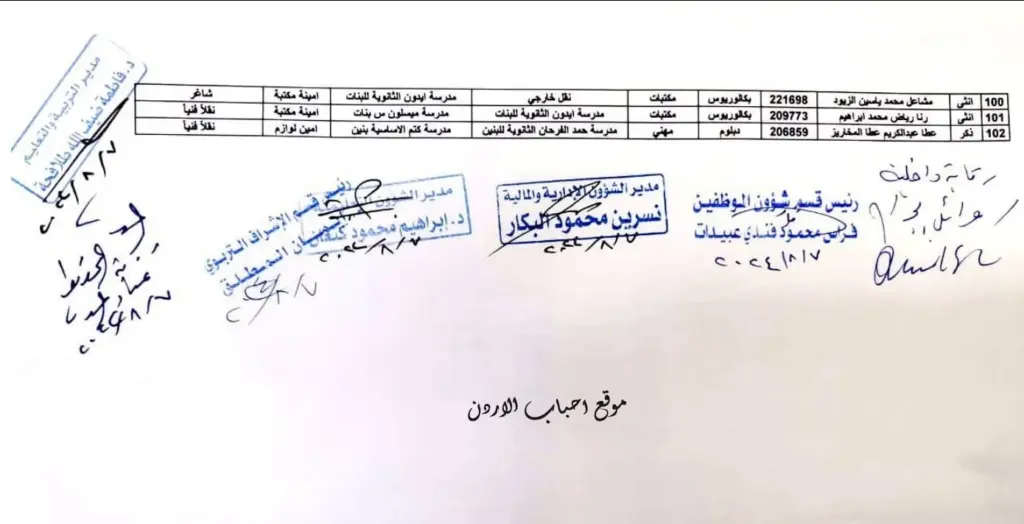 100 انثى مشاعل محمد ياسين الزيود 221698 بكالوريوس مكتبات نقل خارجي مدرسة ايدون الثانوية للبنات امينة مكتبة شاغر
101 انثى رنا رياض محمد ابراهيم 209773 بكالوريوس مكتبات مدرسة ايدون الثانوية للبنات مدرسة ميسلون س بنات امينة مكتبة نقلاً فنياً
102 ذكر عطا عبدالكريم عطا المخاريز 206859 دبلوم مهني مدرسة حمد الفرحان الثانوية للبنين مدرسة كتم الاساسية بنين امين لوازم نقلاً فنياً
رقابة داخلية
رئيس قسم شؤون الموظفين
فراس محمود فندي عبيدات
٢٠٢٤/٨/٧
مدير الشؤون الإدارية والمالية
نسرين محمود البكار
٢٠٢٤/٨/٧
مدير الشؤون
د. إبراهيم محمود
٢٠٢٤/٨/٧
رئيس قسم الإشراف التربوي
٨/٧
مدير التربية والتعليم
د. فاطمة
٢٠٢٤/٨/٧
٢٠٢٤/٨/٧
موقع احباب الاردن